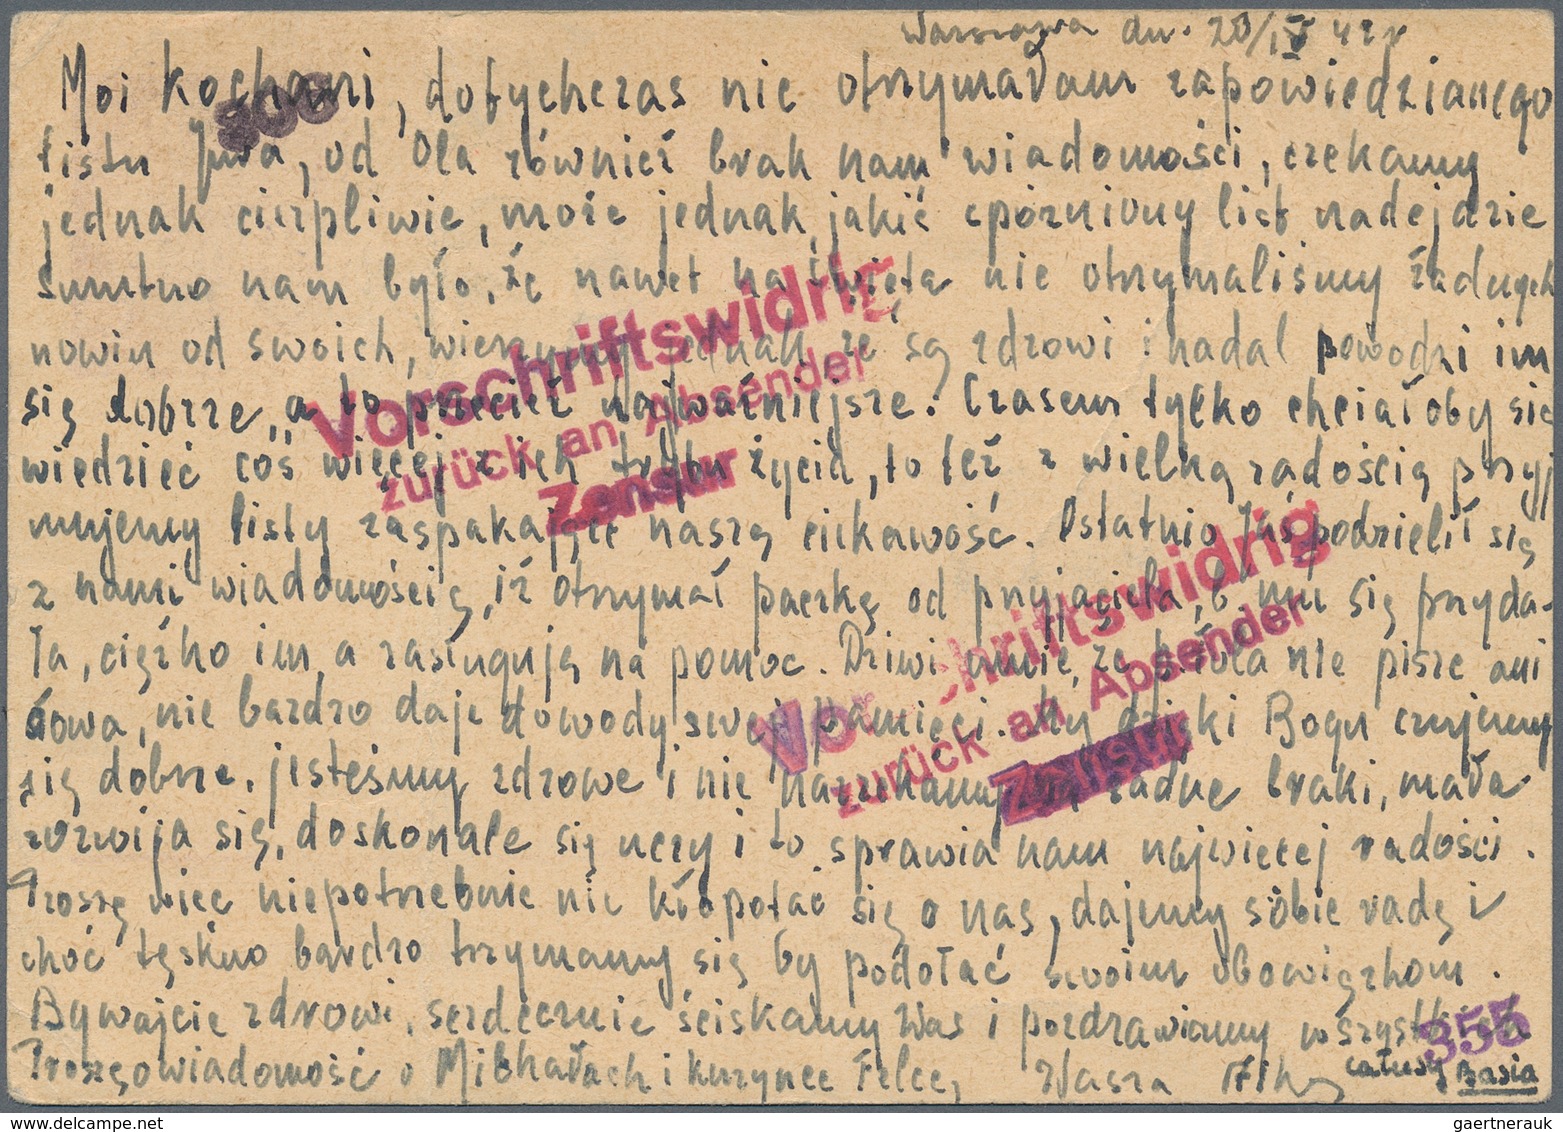 Warszawa dn. 20/IV 42 r
Moi kochani, dotychczas nie otrzymałam zapowiedzianego
300
listu Jura, od Ola również brak nam wiadomości, czekamy
jednak cierpliwie, może jednak jakiś spóźniony list nadejdzie
Smutno nam było, że nawet na święta nie otrzymaliśmy żadnych
nowin od swoich, wierzymy jednak, że są zdrowi i nadal powodzi im
się dobrze, a to przecież najważniejsze. Czasem tylko chciałoby się
wiedzieć coś więcej z ich trybu życia, to też z wielką radością przyj
mujemy listy zaspakające naszą ciekawość. Ostatnio Jaś podzielił się
z nami wiadomością, iż otrzymał paczkę od przyjaciela, b. mu się przyda-
ła, ciężko im a zasługują na pomoc. Dziwi mnie, że p. Pola nie pisze ani
słowa, nie bardzo daje dowody swej pamięci. My dzięki Bogu czujemy
się dobrze, jesteśmy zdrowe i nie narzekamy na żadne braki, mała
rozwija się, doskonale się uczy i to sprawia nam najwięcej radości.
Proszę więc niepotrzebnie nie kłopotać się o nas, dajemy sobie radę i
choć tęskno bardzo trzymamy się by podołać swoim obowiązkom.
Bywajcie zdrowi, serdecznie ściskamy Was i pozdrawiamy wszystkich
Proszę o wiadomość o Michałach i kuzynce Felce, Wasza
całusy Basia
355
Vorschriftswidrig
zurück an Absender
Zensur
Vorschriftswidrig
zurück an Absender
Zensur
gaertnerauk